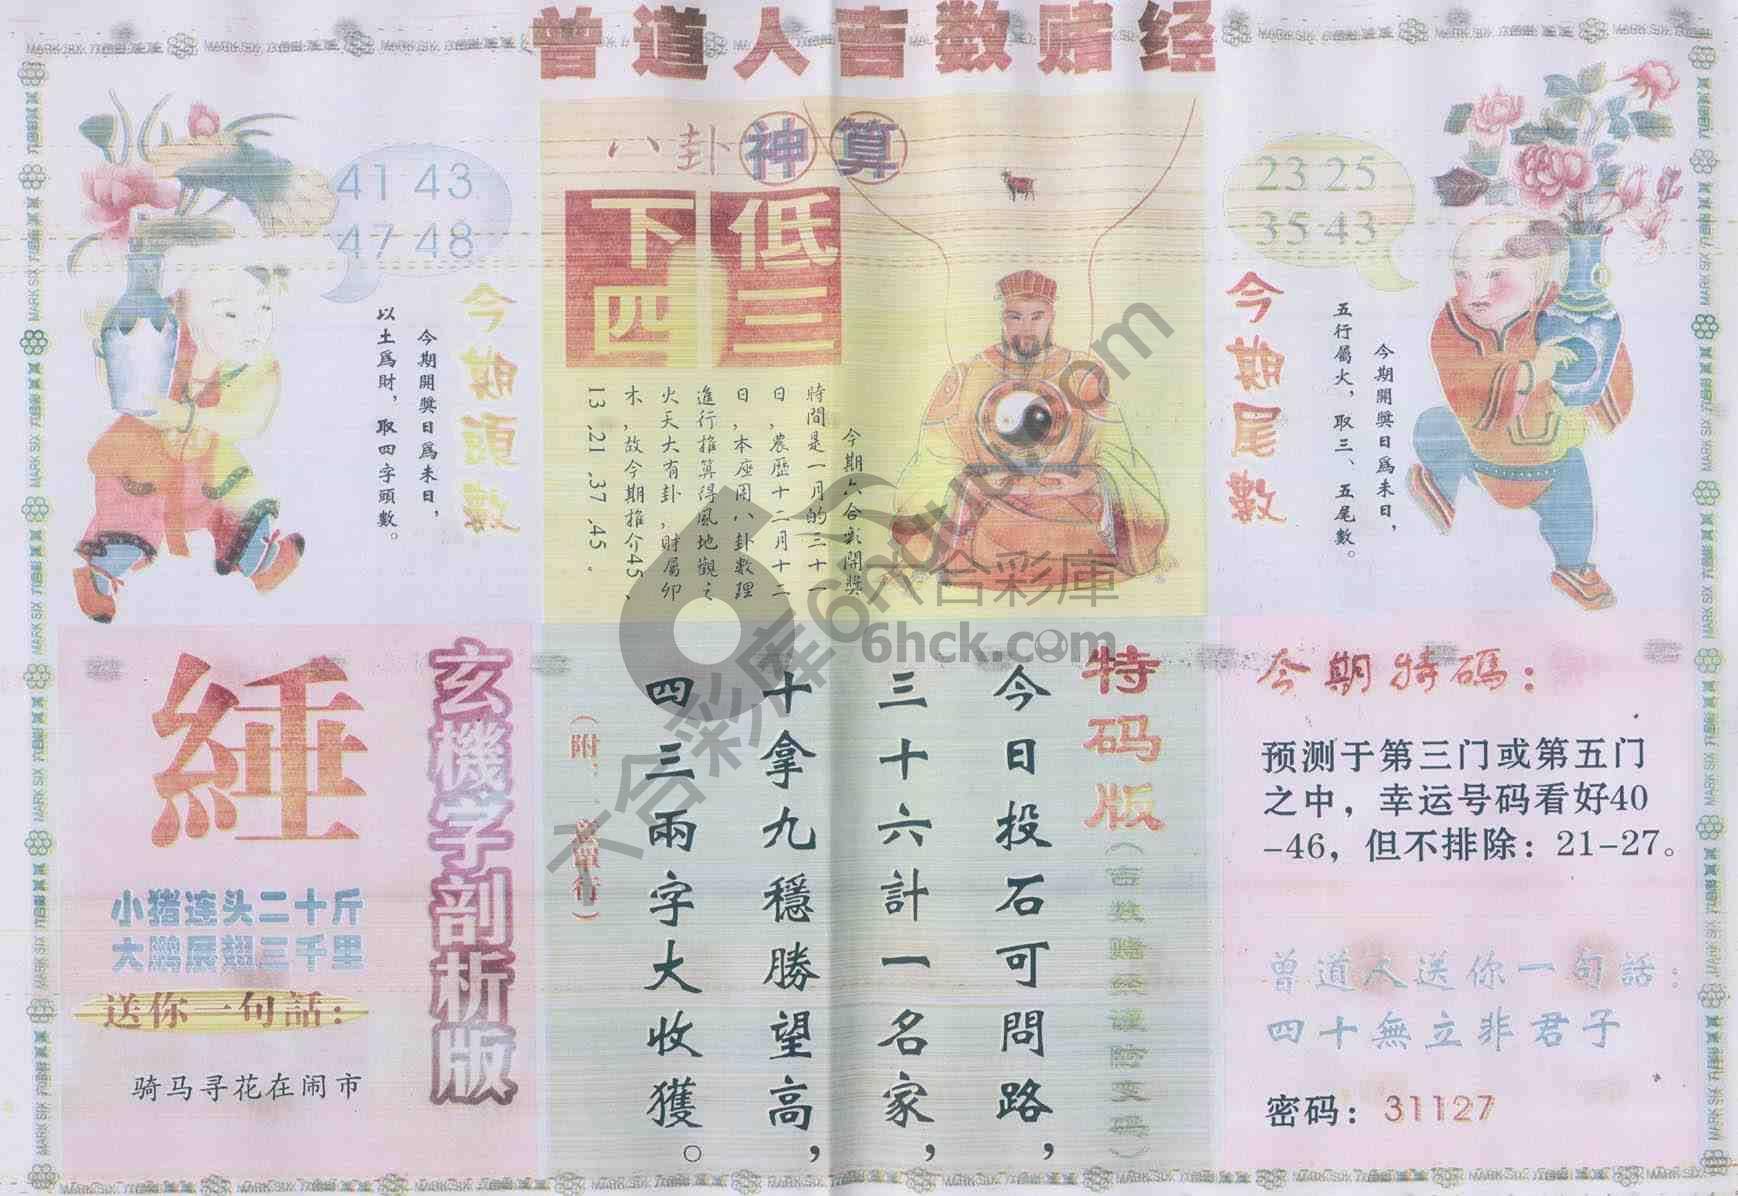 曾道人吉数赌经
八卦神算
低三
下四
今期六合彩開獎
時間是一月的三十一
日，農歷十二月十二
日，本座用八卦數理
進行推算得風地觀之
火天大有卦，財屬卯
木，故今期推介45、
13.21.37.45。
41 43
47 48
今期頭數
今期開獎日爲未日，
以土爲財，取四字頭數。
23 25
35 43
今期尾數
今期開獎日爲未日，
五行屬火，取三、五尾數。
玄機字剖析版
綞
小猪连头二十斤
大鹏展翅三千里
送你一句話：
骑马寻花在闹市
特码版
今日投石可問路，
三十六計一名家，
十拿九穩勝望高，
四三兩字大收獲。
今期特碼：
预测于第三门或第五门
之中，幸运号码看好40
-46，但不排除：21-27。
曾道人送你一句話：
四十無立非君子
密码：31127
六合彩库6hck.com
六合彩庫
6hck.com